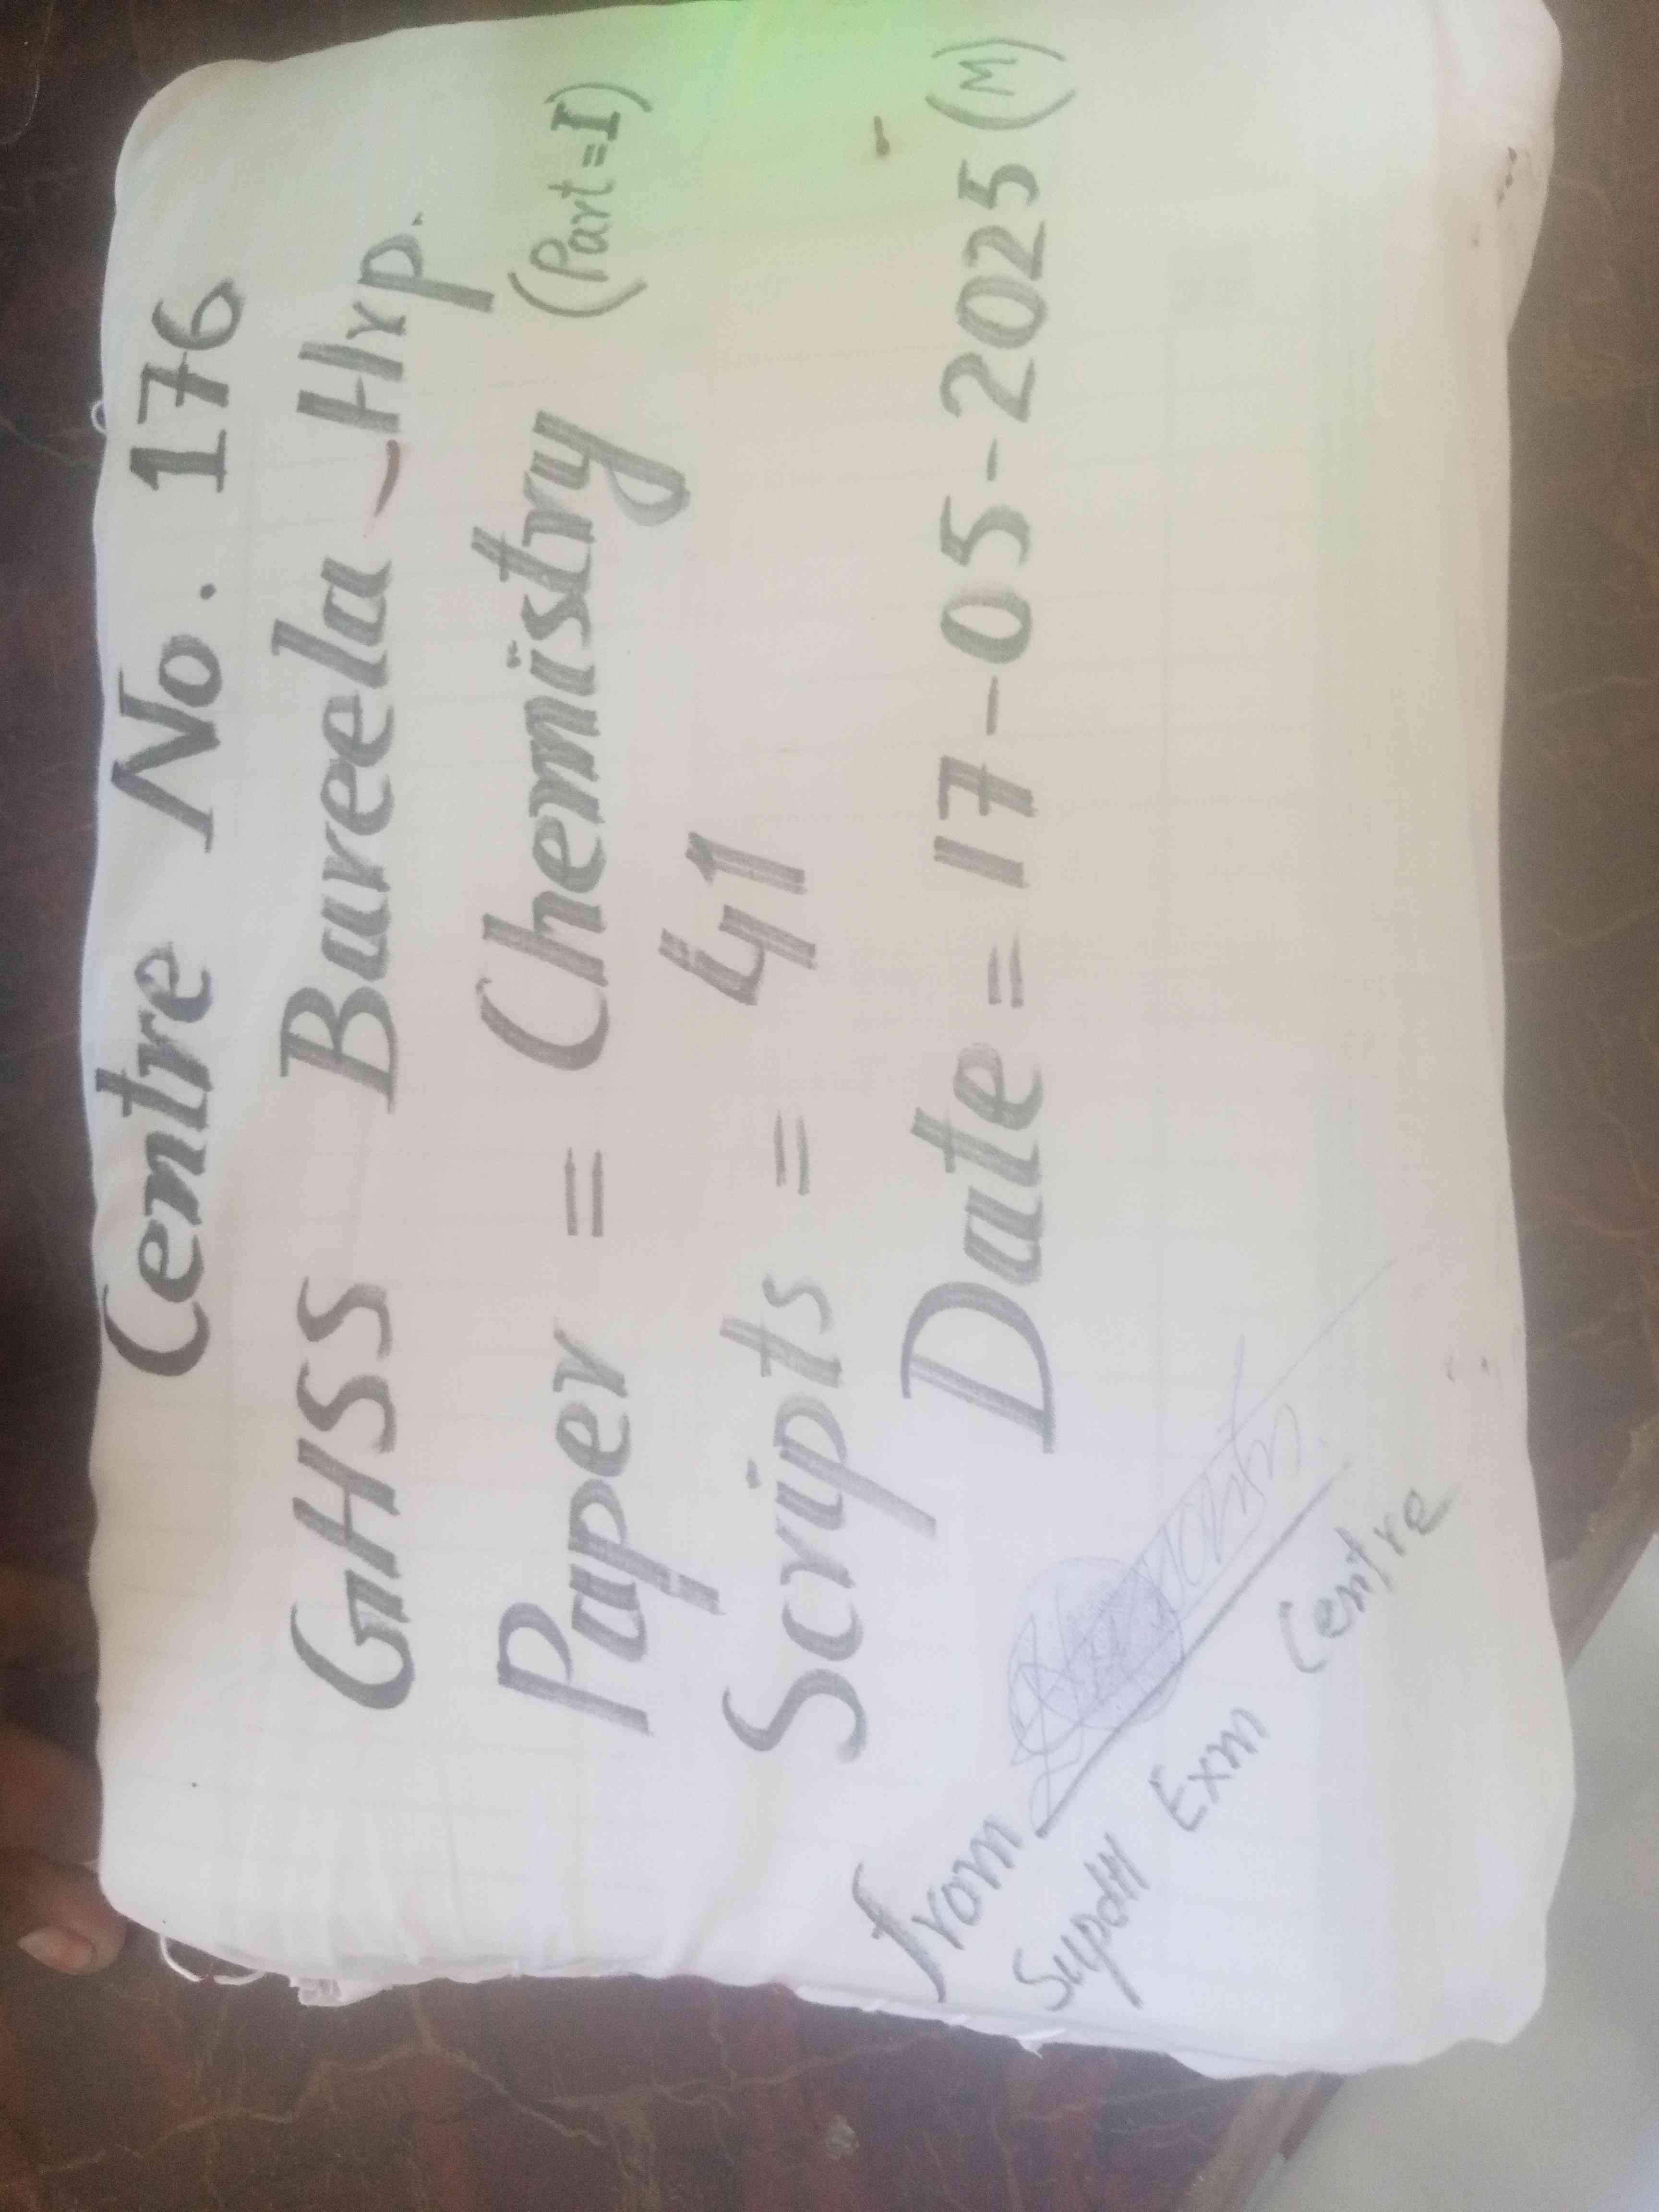 Centre No. 176
GHSS Bareela - Hrp.
Paper = Chemistry (Part=I)
Scripts = 41
Date = 17-05-2025 (M)
from
Supdtt Exm Centre